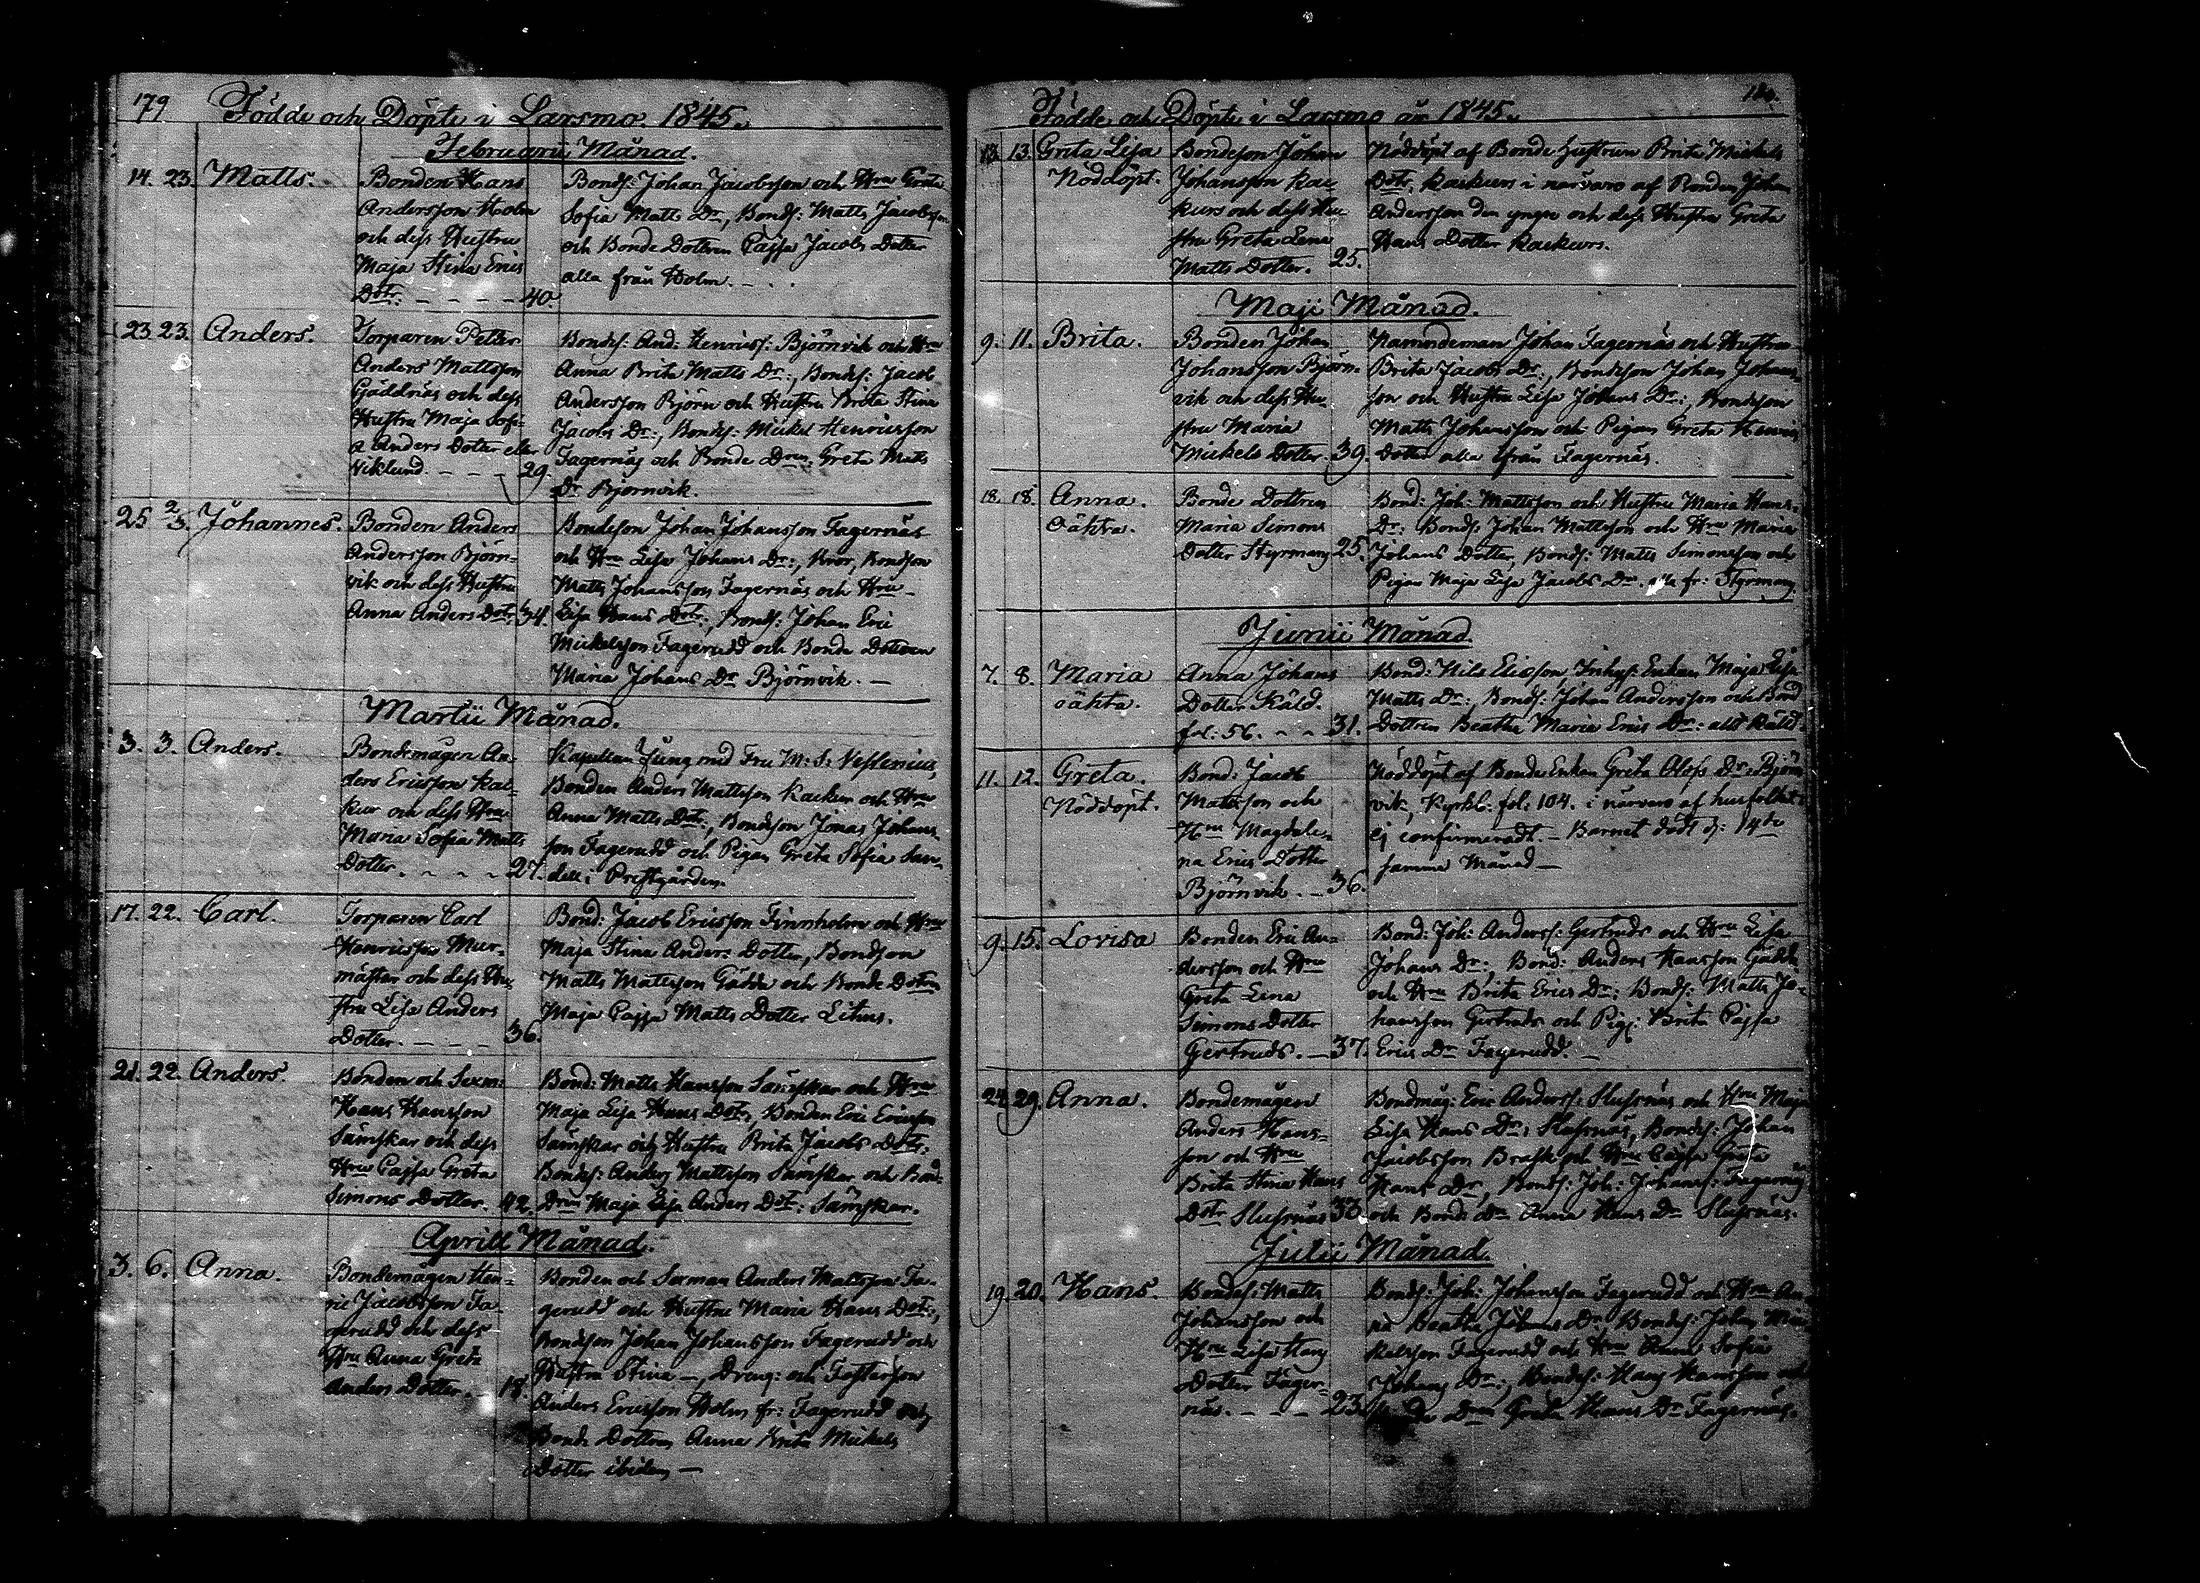 179 Födde och Döpte i Larsmo. 1845.
Februarii Månad.
14. 23. Matts.
Bonden Hans
Andersson Holm
och dess Hustru
Maja Stina Erics
Dotr. - - - - 40.
Bonds: Johan Jacobsson och Hru Greta
Sofia Matts Dr:, Bonds: Matts Jacobsson
och Bonde Dottren Cajsa Jacobs Dotter
alla från Holm. - . .
23. 23. Anders.
Torparen Petter
Anders Mattsson
Gäddnäs och dess
Hustru Maja Sofi-
a Anders Doter eller
Wiklund. - - - 29.
Bonds: And: Henricss: Björnvik och Hru
Anna Brita Matts Dr:, Bonds: Jacob
Andersson Björn och Hustru Brita Stina
Jacobs Dr:, Bonds: Mickel Henricsson
Fagernäs och Bonde Dren Greta Matts
Dr Björnvik.
25 2/3. Johannes.
Bonden Anders
Andersson Björn-
vik och dess Hustru
Anna Anders Dotr: 34.
Bondeson Johan Johansson Fagernäs
och Hru Lisa Johans Dr:, Bondson
Matts Johansson Fagernäs och Hru
Lisa Hans Dotr:, Bonds: Johan Eric
Mickelsson Fagerudd och Bonde Dottren
Maria Johans Dr Björnvik. -
Martii Månad.
3. 3. Anders.
Bondemågen An-
ders Ericsson Kac-
kur och dess Hru
Maria Sofia Matts
Dotter. - - - - 27.
Kapellan Ljung med Fru M: S:
Bonden Anders Mattsson Kackur och Hru
Anna Matts Dotr:, Bondeson Jonas Johans-
son Fagerudd och Pigan Greta Sofia San-
dell i Prestgården.
17. 22. Carl.
Torparen Carl
Henricsson Mur-
mästar och dess Hu-
stru Lisa Anders
Dotter. - - - - 36.
Bond: Jacob Ericsson Finnholm och Hru
Maja Stina Anders Dotter, Bondson
Matts Mattsson Gädda och Bonde Dotren
Maja Cajsa Matts Dotter Lithus.
21. 22. Anders.
Bonden och Sexm:
Hans Hansson
Sämskar och dess
Hru Cajsa Greta
Simons Dotter. 42.
Bond: Matts Hansson Sämskar och Hru
Maja Lisa Hans Dotr, Bonden Eric Ericsson
Sämskar och Hustru Brita Jacobs Dotr:
Bonds: Anders Mattsson Sämskar och Bond
Dren Maja Lisa Anders Dot: Sämskar.
Aprill Månad.
3. 6. Anna.
Bondemågen Hen-
ric Jacobsson Fa-
gerudd och dess
Hru Anna Greta
Anders Dotter. - 18.
Bonden och Sexman Anders Mattsson Fa-
gerudd och Hustru Maria Hans Dot:,
Bondson Johan Johansson Fagerudd och
Hustru Stina -, Dreng: och Fosterson
Anders Ericsson Holm fr: Fagerudd och
Bonde Dottren Anna Brita Mickels
Dotter ibidem -
180.
Födde och Döpte i Larsmo år 1845.
13. 13. Greta Lisa
Nöddöpt.
Bondeson Johan
Johansson Kac-
kurs och dess Hu-
stru Greta Lena
Matts Dotter. 25.
Nöddöpt af Bonde hustrun Brita Mickels
Dotr, Kackurs i närvaro af Bonden Johan
Andersson den yngre och dess Hustru Greta
Hans Dotter Kackurs.
Maji Månad.
9. 11. Brita.
Bonden Johan
Johansson Björn-
vik och dess Hu-
stru Maria
Mickels Dotter. 39.
Nämndeman Johan Fagernäs och Hustru
Brita Jacobs Dr:, Bondeson Johan Johans-
son och Hustru Lisa Johans Dr:, Bondeson
Matts Johansson och Pigan Greta Henrics
Dotter alla ifrån Fagernäs.
18. 18. Anna.
oäkta.
Bonde Dottren
Maria Simons
Dotter Styrmans 25.
Bond: Joh: Mattsson och Hustru Maria Hans-
Dr: Bonds: Johan Mattsson och Hru Maria
Johans Dotter, Bonds: Matts Simonsson och
Pigan Maja Lisa Jacobs Dr. alla fr: Styrmans
Junii Månad.
7. 8. Maria
oäkta.
Anna Johans
Dotter Käld.
fol: 56. - - 31.
Bond: Nils Elisson Enkan Maja Lisa
Matts Dr:, Bonds: Johan Andersson och Bond
Dottren Beatha Maria Erics Dr: allt Käld
11. 12. Greta.
Nöddöpt.
Bond: Jacob
Mattsson och
Hru Magdale-
na Erics Dotter
Björnvik. - 36.
Nöddöpt af Bonde Enkan Greta Olofs Dr: Björn-
vik, Kyrkb: fol: 104. i närvaro af husfolket
ej confirmeradt. - Barnet dödt d: 14de
samma Månad -
9. 15. Lovisa
Bonden Eric An-
dersson och Hru
Greta Lena
Simons Dotter
Gertruds. - 37.
Bond: Joh: Anderss: Gertruds och Hru Lisa
Johans Dr:, Bond: Anders Hansson Gädda
och Hru Brita Erics Dr: Bonds: Matts Jo-
hansson Gertruds och Pig: Brita Cajsa
Erics Dr Fagerudd. -
24. 29. Anna.
Bondemågen
Anders Hans-
son och Hru
Brita Stina Hans
Dotr Slusnäs 33.
Bondmåg: Eric Anderss: Slusnäs och Hru Maja
Lisa Hans Dr: Slusnäs, Bonds: Johan
Jacobsson Brask och Hru Cajsa Greta
Hans Dr, Bonds: Joh: Johanss: Fagernäs
och Bonde Dr Anna Hans Dr Slusnäs.
Julii Månad.
19. 20. Hans.
Bondes: Matts
Johansson och
Hru Lisa Hans
Dotter Fager-
näs. - - - - 23.
Bonds: Joh: Johansson Fagerudd och Hru An-
na Beatha Johans Dr Bonds: Johan Mic-
kelsson Fagerudd och Hru Anna Sofia
Johans Dr:, Bondes: Hans Hansson och
Dren Greta Hans Dr Fagernäs.